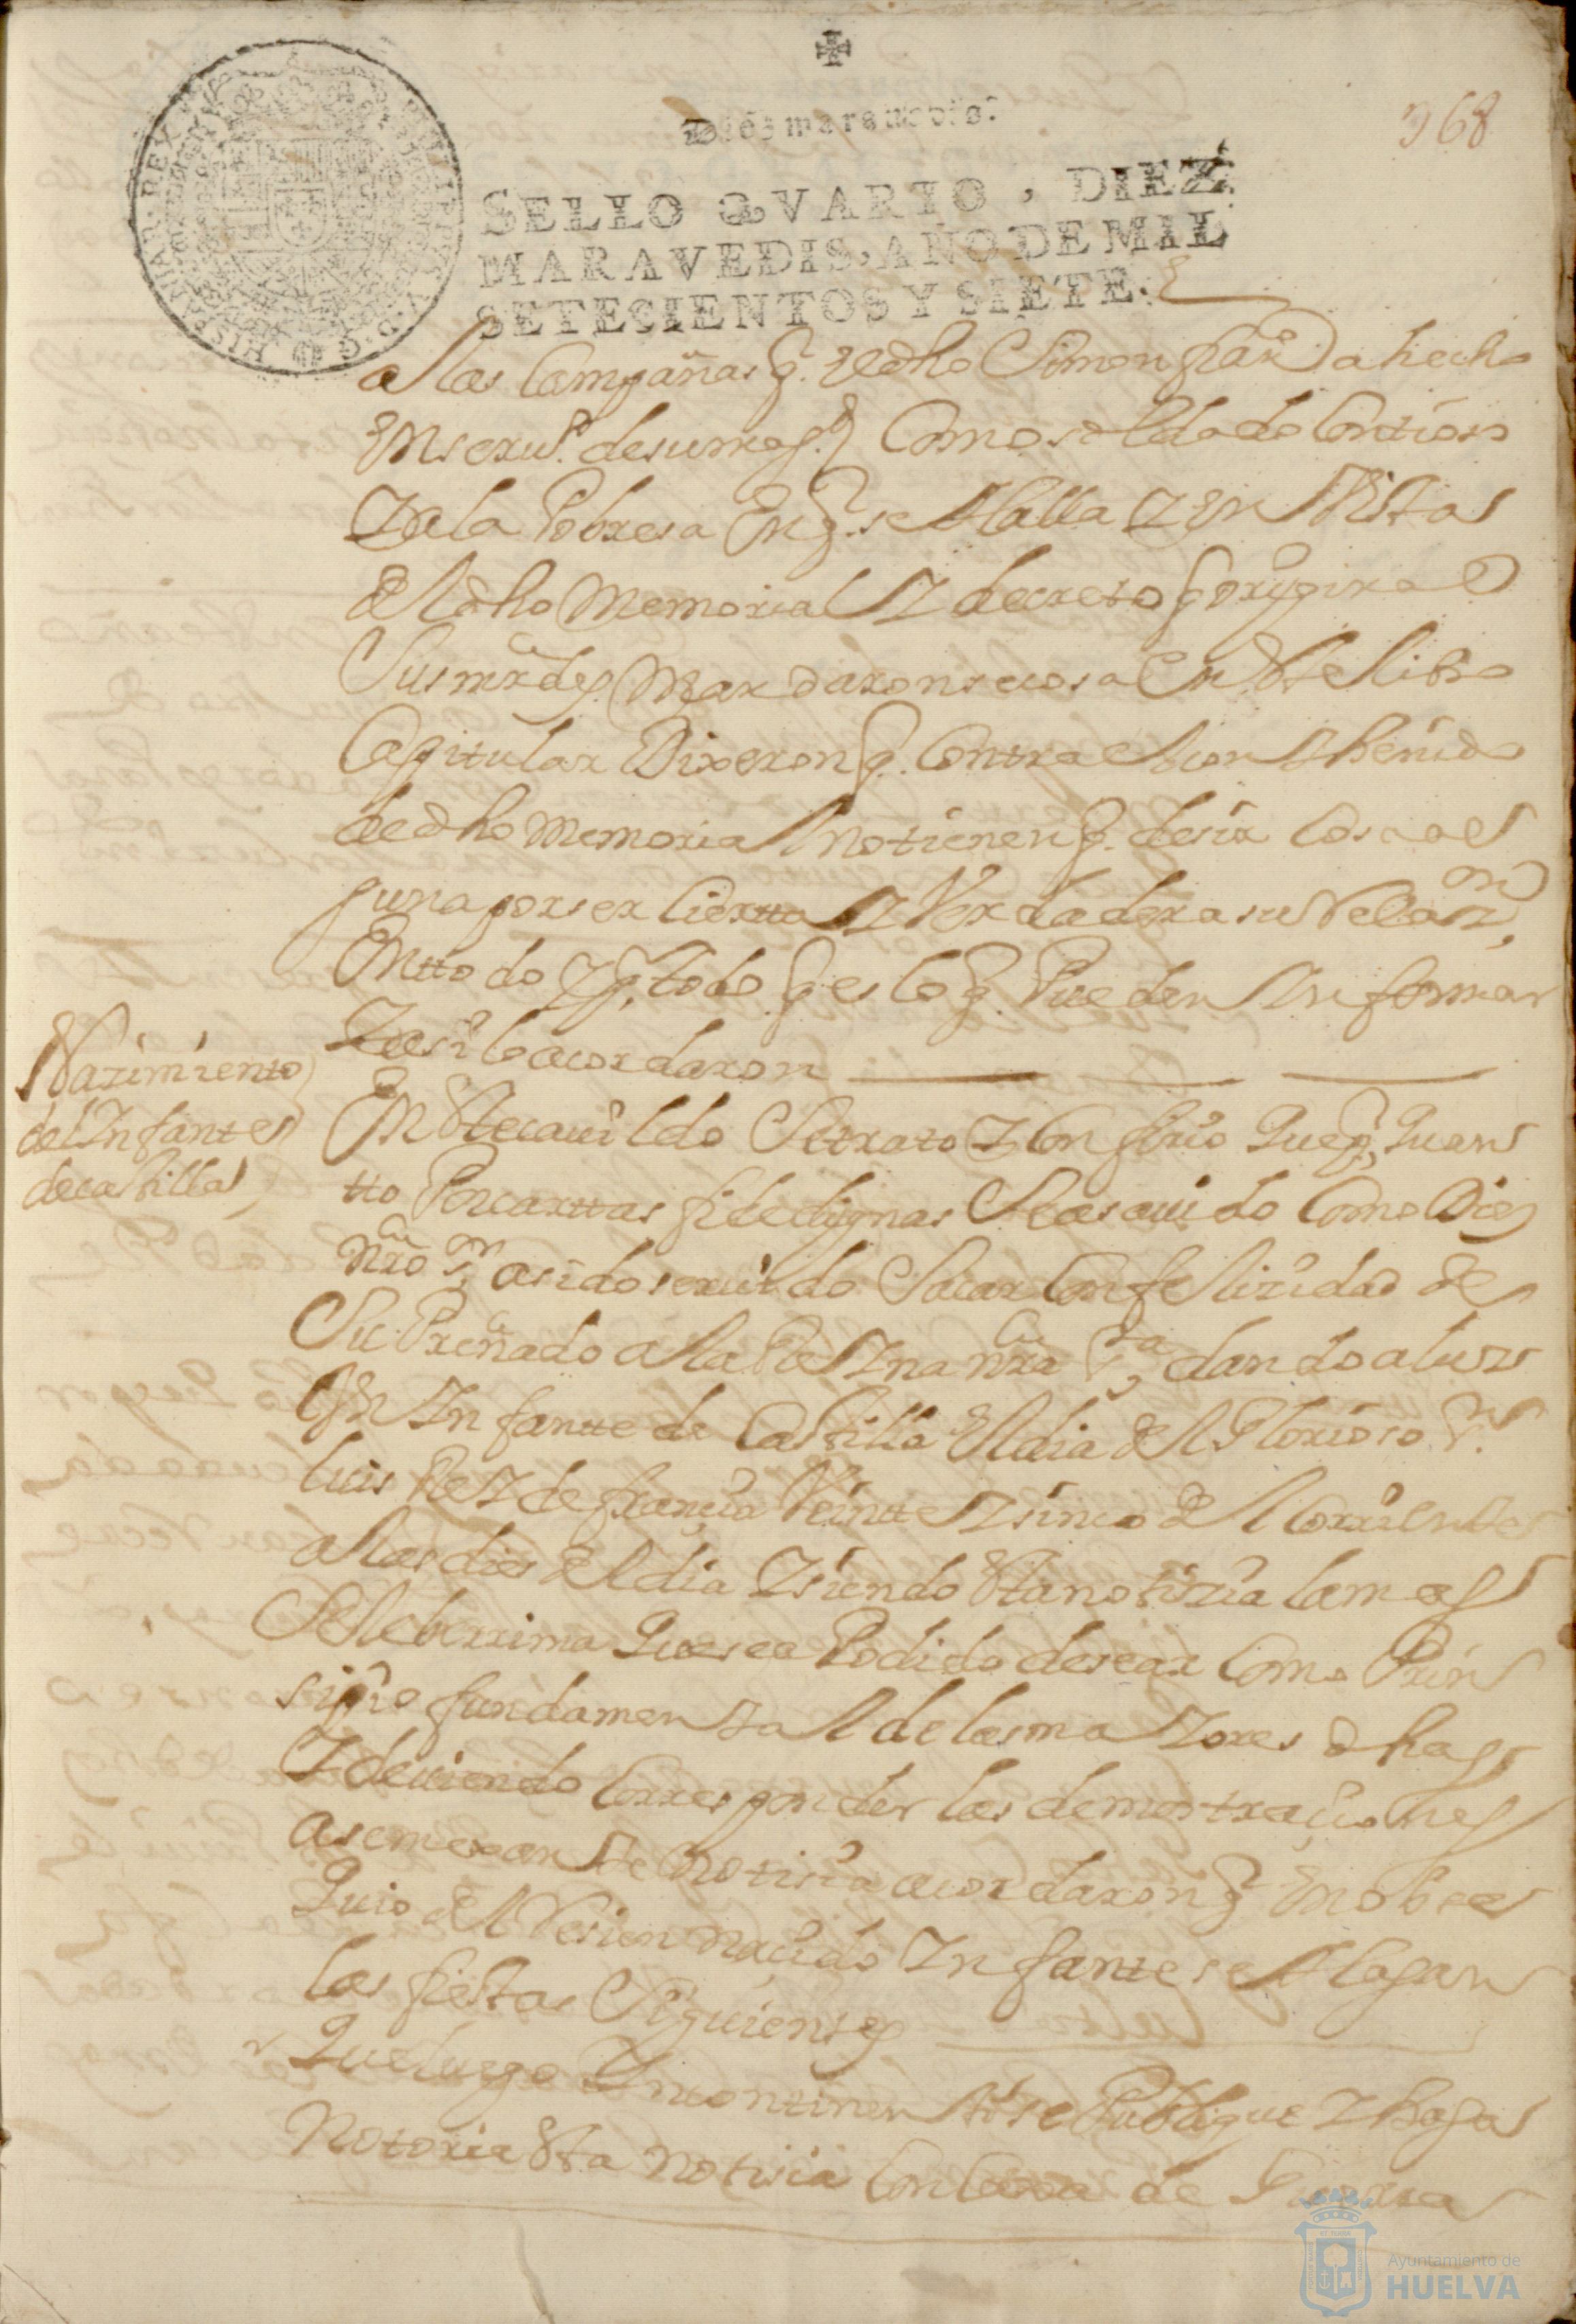 Diez marauedis.
968
SELLO QVARTO, DIEZ
MARAVEDIS, AÑO DE MIL
SETECIENTOS Y SIETE.
PHILIPPVS V D G HISPANIAR REX
a las Campañas q. el dho Simon a hecho
En seru.º de su mag.d Como soldado
y a la Pobresa En q. se Alla y En Vista
del dho Memorial y decreto q original
Sus mrdes Mandaron se cosa En este Libro
Capitular Dixeron q. Contra el Conthenido
de dho Memorial no tienen q. desir Cosa al
guna por ser Cierta y Verdadera su Relaz.on
En ttodo y q. todo q es lo q. Pueden Informar
y asi lo acordaron
Nazimiento
del Infante
de castilla
En Este cauildo Se trato y Confirio Que p.r Quan
tto Por carttas fidedignas Se a sauido Como Dios
nro S.r a sido seruido Sacar Con felizidad de
Su Preñado a la Reyna nra S.ra dando a luz
Un Infantte de Castilla El dia del Glorioso S.n
Luis Rey de françia Veintte y sinco del Corriente
a las dies del dia y siendo Esta notizia la mas
Seleberrima Que se a Podido desear Como Prin
sipio fundamental de las mayores dhas
y deuiendo Corresponder las demostraçiones
a semexante notisia acordaron q En obse
quio del Resien naçido Infante se Hagan
las fiestas Siguientes
Que luego Yncontinenti se Publique y haga
Notoria Esta notisia Con Caxa de Guerra
Ayuntamiento de
HUELVA